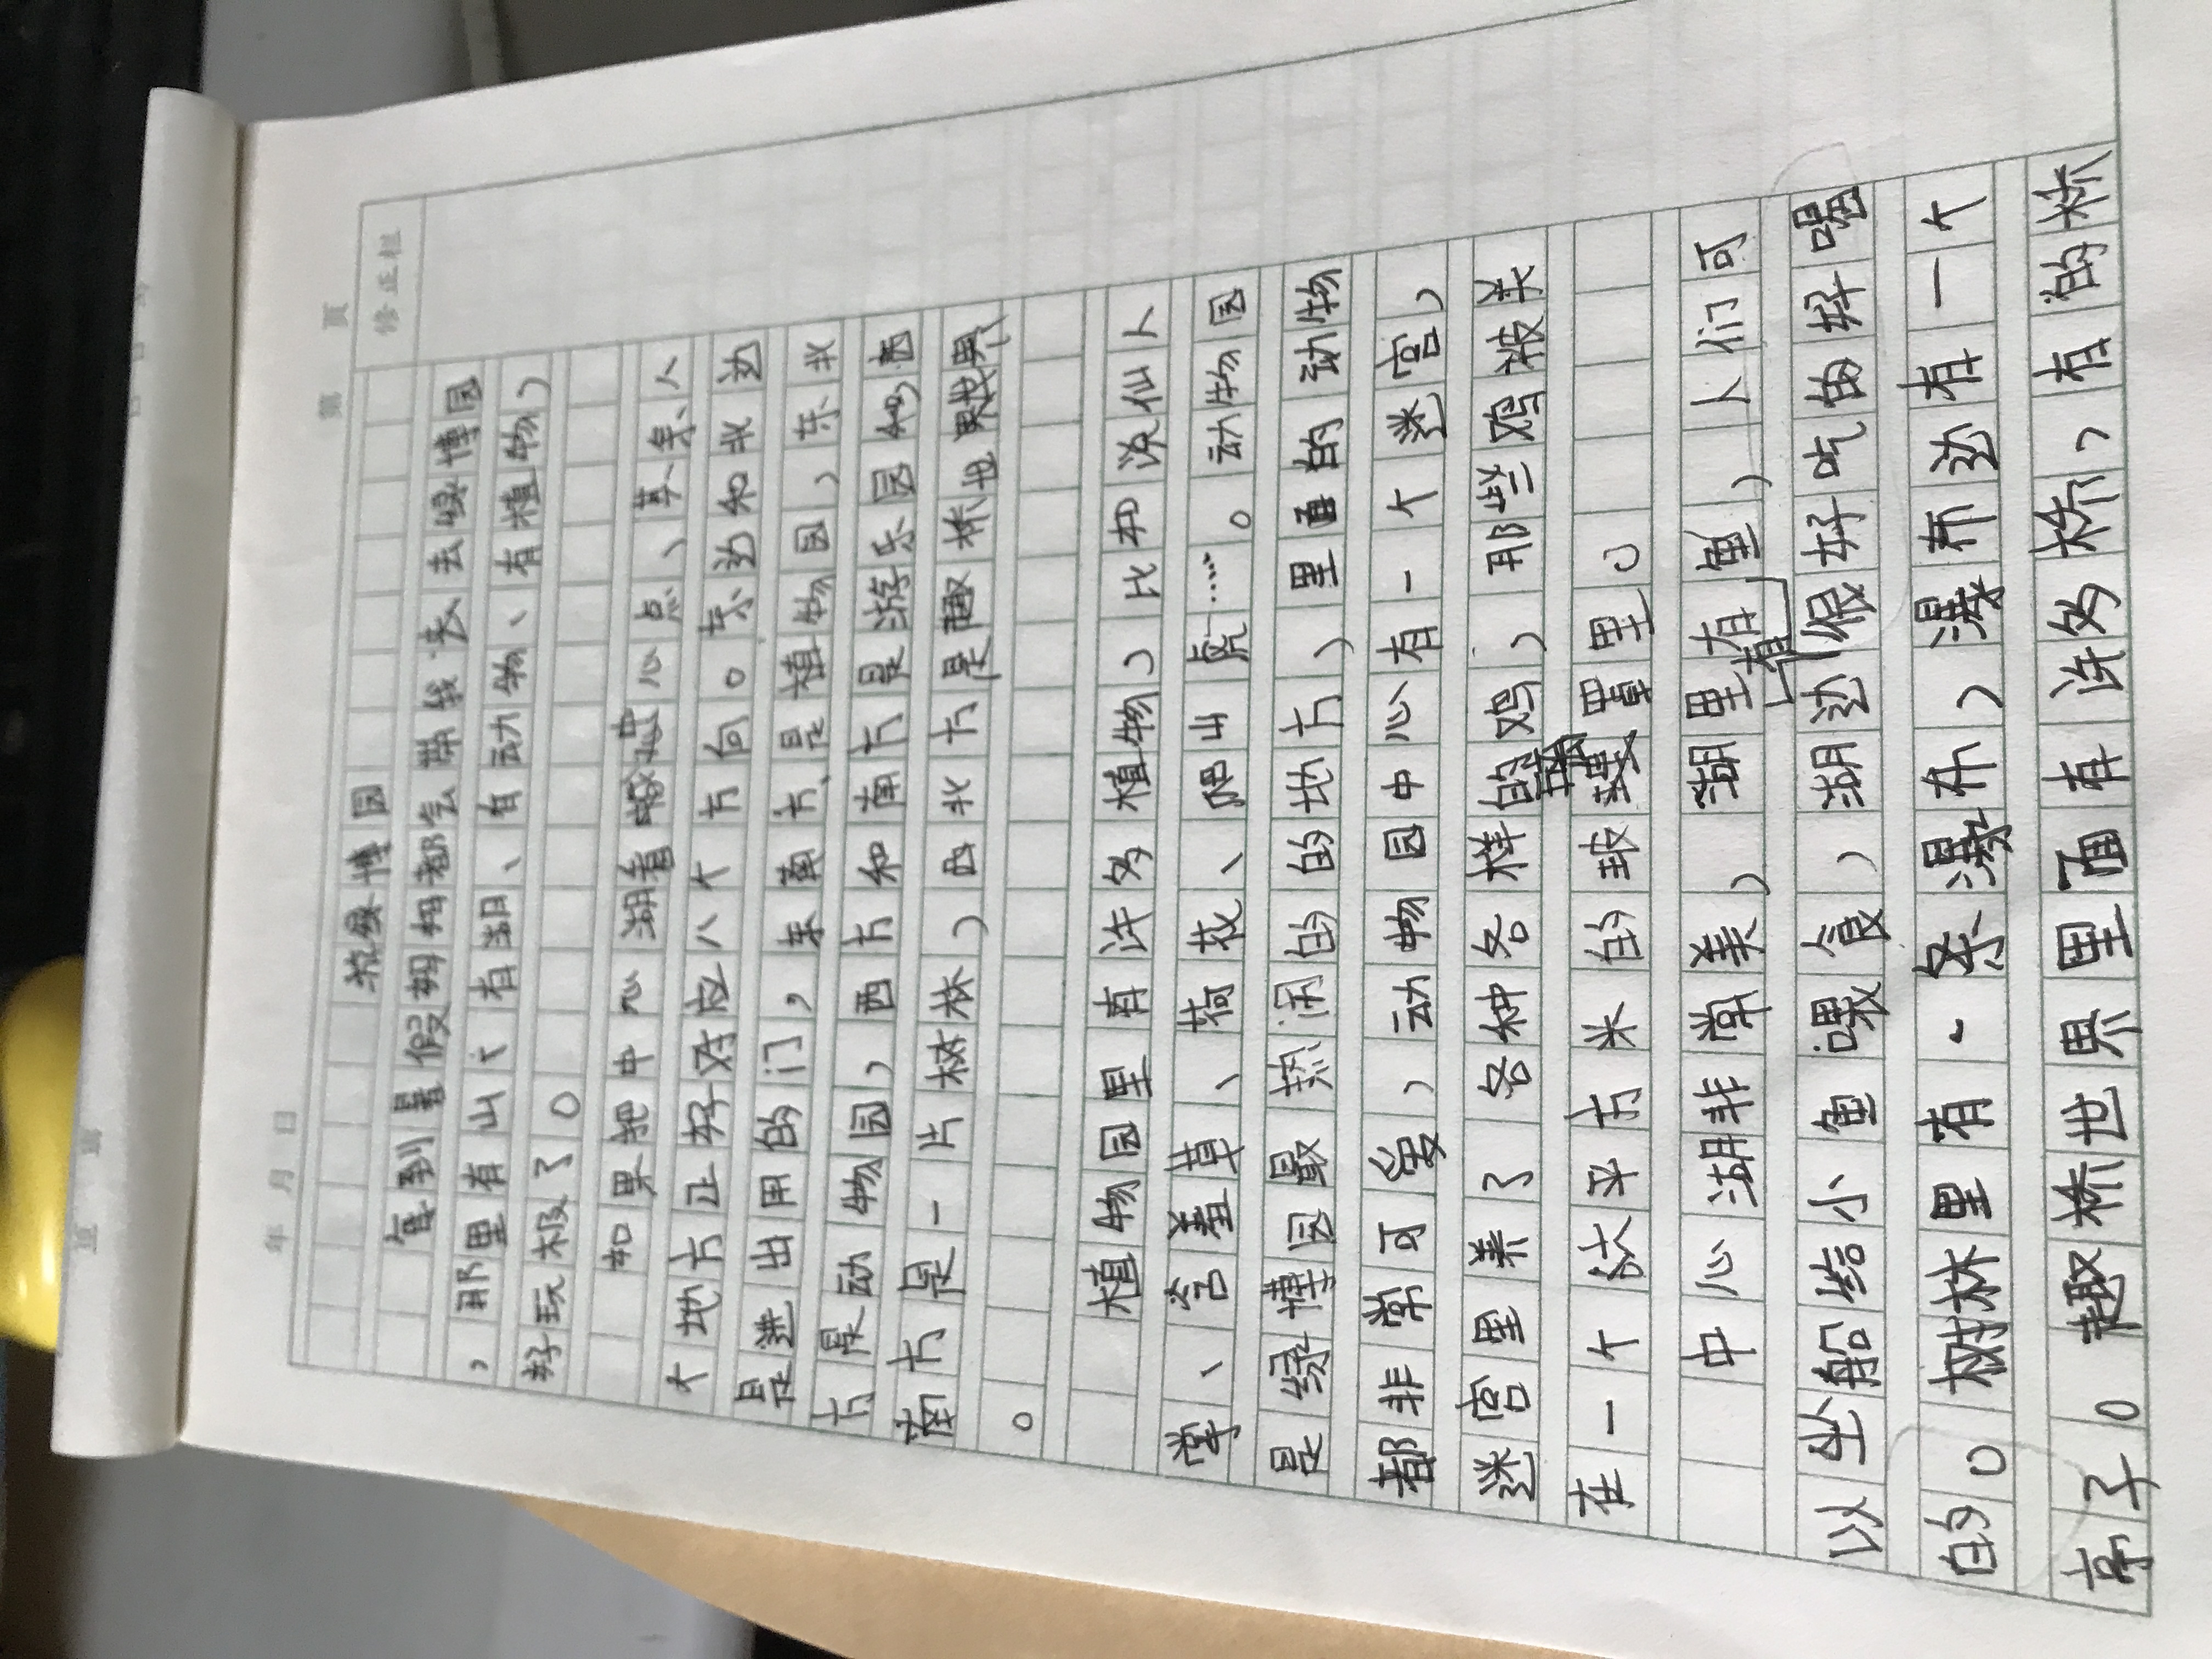 年 月 日
第 页
修正栏
绿博园
每到暑假妈妈都会带我去绿博园
，那里有山、有湖、有动物、有植物，
好玩极了。
如果把中心湖看
点，其余八
个地方正好对应八个方向。东边和北边
是进出用的门，东南方是植物园，东北
方是动物园，西方和南方是游乐园，西
南方是一片树林，西北方是趣桥世界
。
植物园里有许多植物，比如说仙人
掌、含羞草、荷花、爬山虎……。动物园
是绿博园最热闹的的地方，里面的动物
都非常可爱，动物园中心有一个迷宫，
迷宫里养了各种各样的鸡，那些鸡被关
在一个
平方米的
罩里。
中心湖非常美，湖里有鱼，人们可
以坐船给小鱼喂食，湖边有很好吃的好喝
的。树林里有一条瀑布，瀑布边有一个
亭子。趣桥世界里面有许多桥，有的桥